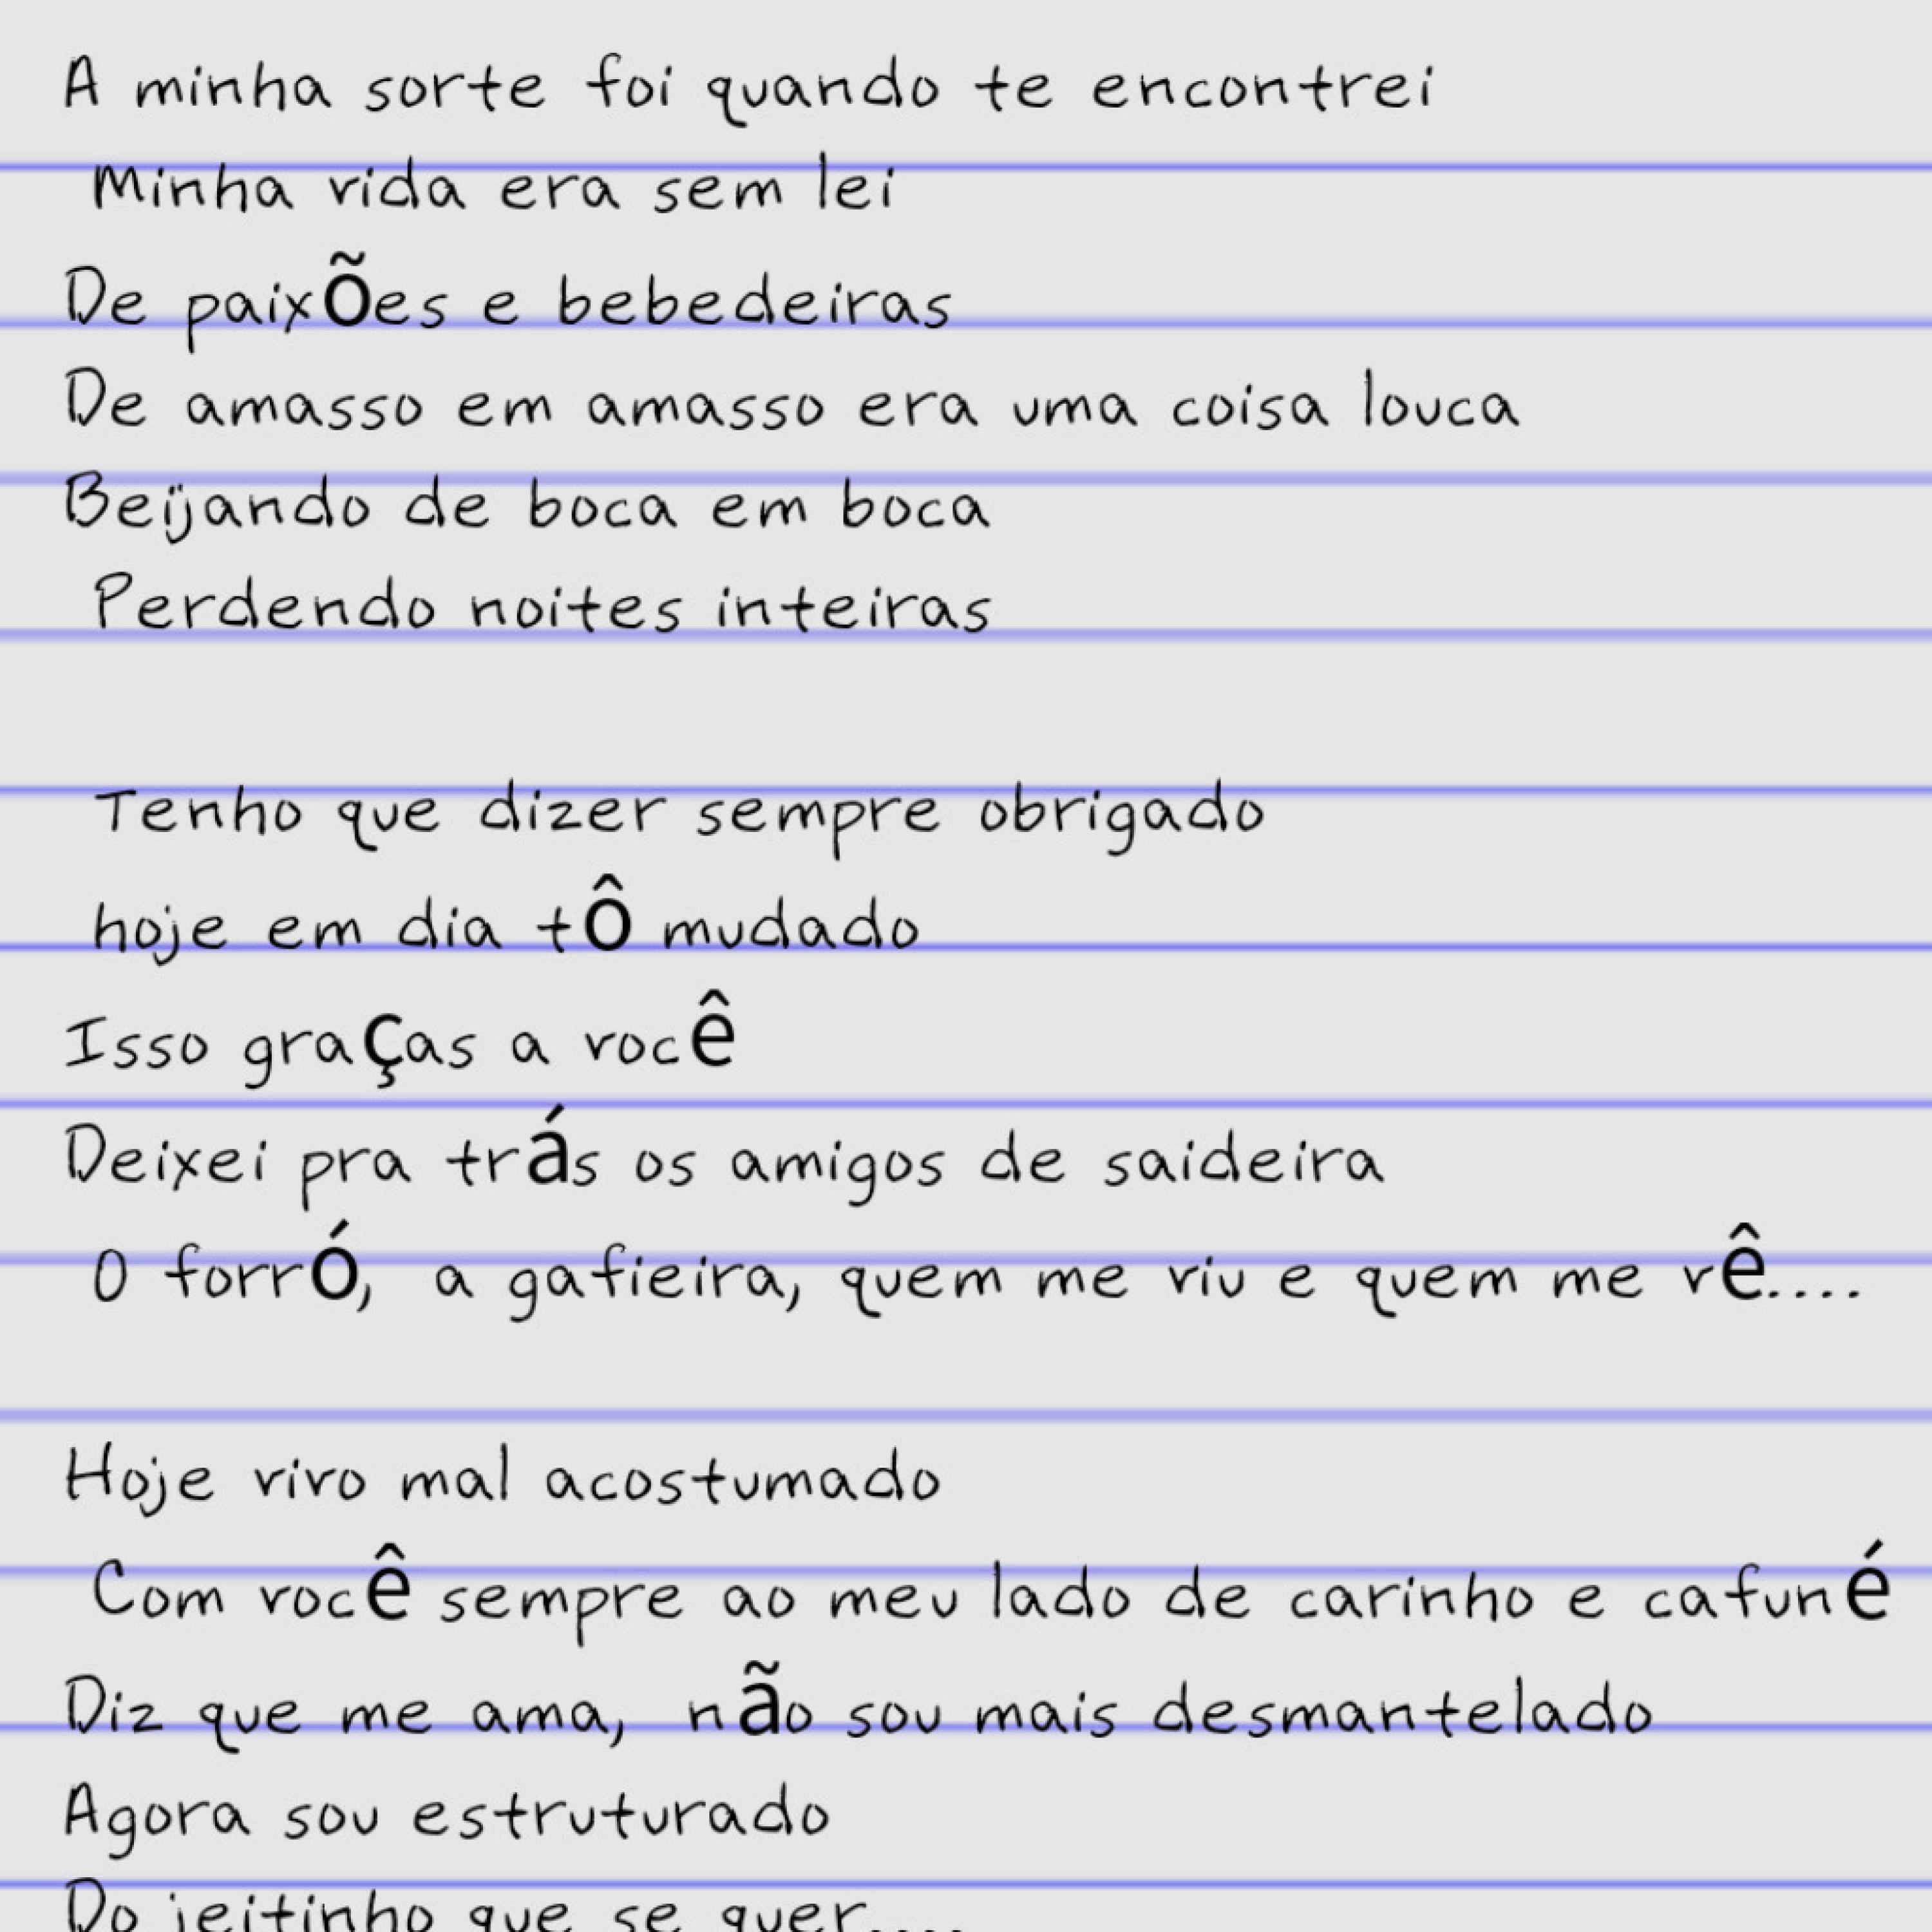 A minha sorte foi quando te encontrei
Minha vida era sem lei
De paixões e bebedeiras
De amasso em amasso era uma coisa louca
Beijando de boca em boca
Perdendo noites inteiras
Tenho que dizer sempre obrigado
hoje em dia tô mudado
Isso graças a você
Deixei pra trás os amigos de saideira
O forró, a gafieira, quem me viu e quem me vê....
Hoje vivo mal acostumado
Com você sempre ao meu lado de carinho e cafuné
Diz que me ama, não sou mais desmantelado
Agora sou estruturado
Do jeitinho que se quer....